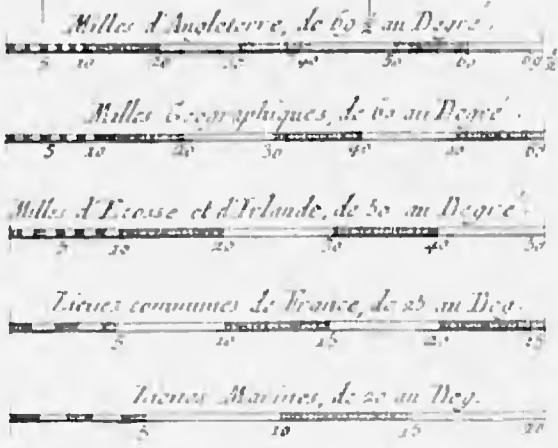 Milles d'Angleterre, de 69 ½ au Degré.
5 10 20 30 40 50 60 69½
Milles Geographiques, de 60 au Degré.
5 10 20 30 40 50 60
Milles d'Ecosse et d'Irlande, de 50 au Degré.
5 10 20 30 40 50
Lieues communes de France, de 25 au Deg.
5 10 15 20 25
Lieues Marines, de 20 au Deg.
5 10 15 20